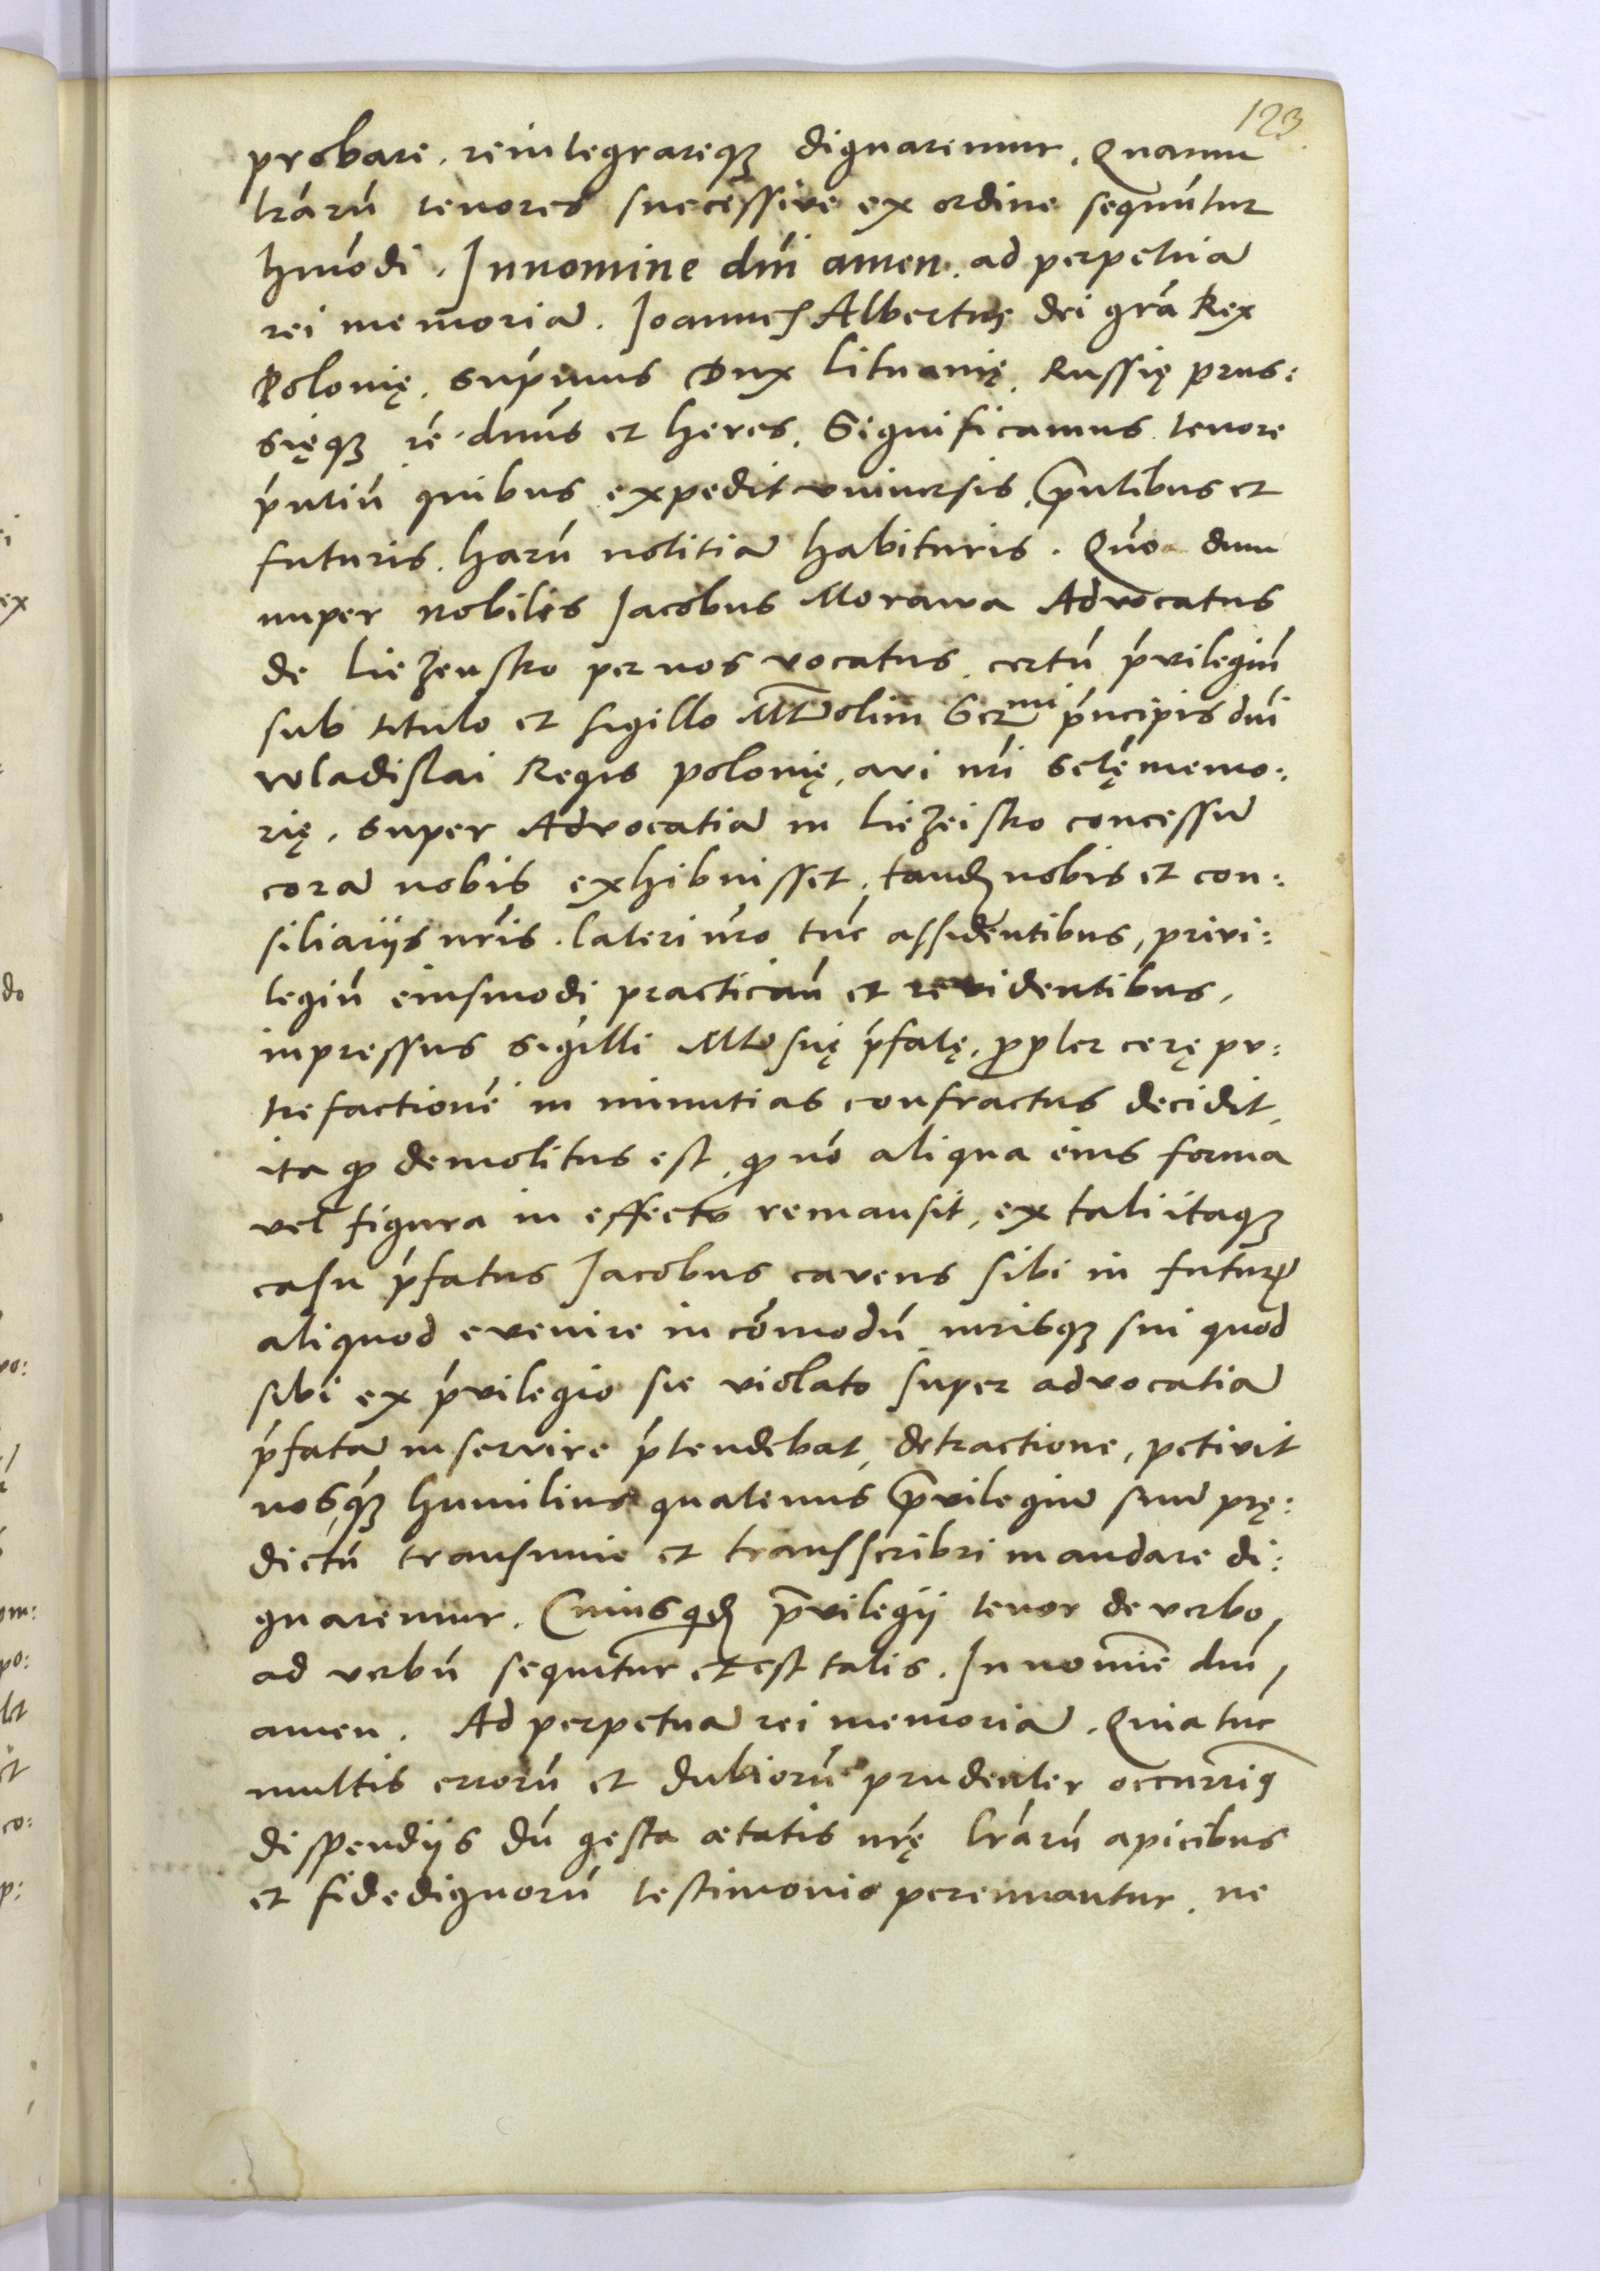 123
probare, reintegrareqȝ dignaremur. Quaruu
lrarū tenores successive ex ordine sequūtur
hmōdi. In nomine dni amen. ad perpetuā
rei memoriā. Joannes Albertus dei grā Rex
Polonię. supmus Dux Lituanię, Russię prus:
sięqȝ rē. dnūs et heres. Significamus tenore
pn̄tiū quibus expedit vniuersis, pn̄tibus et
futuris. harū notitiā habituris. Quō dum
nuper nobilis Jacobus Morawa Advocatus
de Liezensko per nos vocatus, certū privilegiū
sub titulo et sigillo Mtis olim Sermi principis dni
wladislai Regis polonię, avi nri sctę memo:
rię. super Advocatiā in Liezeisko concessū
corā nobis exhibuisset, tandē nobis et con:
siliarijs nris. lateri nro tūc assidentibus, privi:
legiū eiusmodi practicaū et revidentibus,
impressus sigilli Mtis suę pfatę, ppter cerę pu:
trefactionē in minutias confractus decidit,
ita qp demolitus est, qp nō aliqua eius forma
vel figura in effectu remansit, ex tali itaqȝ
casu pfatus Jacobus cavens sibi in futurū
aliquod evenire incōmodū iurisqȝ sui quod
sibi ex privilegio sic violato super advocatiā
pfatā inservire ptendebat, detractione, petivit
nosqȝ humilius quatenus privilegiū suū prę:
dictū transumi et transscribi mandare di:
gnaremur. Cuius qdē privilegij tenor de verbo,
ad verbū sequitur et est talis. In nomīe dni,
amen. Ad perpetuā rei memoriā. Quia tūc
multis errorū et dubiorū prudenter occurrim9
dispendijs dū gesta ætatis nrę lrarū apicibus
et fidedignorū testimonio perennantur, ne